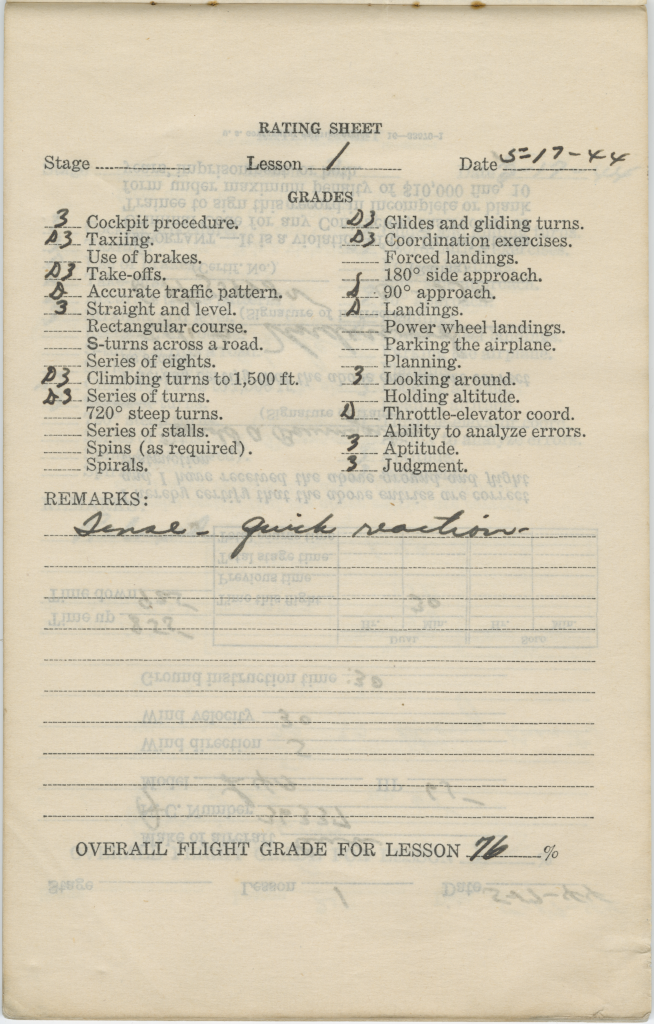 RATING SHEET
Stage Lesson 1 Date 5-17-44
GRADES
3 Cockpit procedure.
D3 Taxiing.
Use of brakes.
D3 Take-offs.
D Accurate traffic pattern.
3 Straight and level.
Rectangular course.
S-turns across a road.
Series of eights.
D3 Climbing turns to 1,500 ft.
D3 Series of turns.
720° steep turns.
Series of stalls.
Spins (as required).
Spirals.
D3 Glides and gliding turns.
D3 Coordination exercises.
Forced landings.
180° side approach.
90° approach.
D Landings.
Power wheel landings.
Parking the airplane.
Planning.
3 Looking around.
Holding altitude.
D Throttle-elevator coord.
Ability to analyze errors.
3 Aptitude.
3 Judgment.
REMARKS:
Tense - quick reaction.
OVERALL FLIGHT GRADE FOR LESSON 76 %